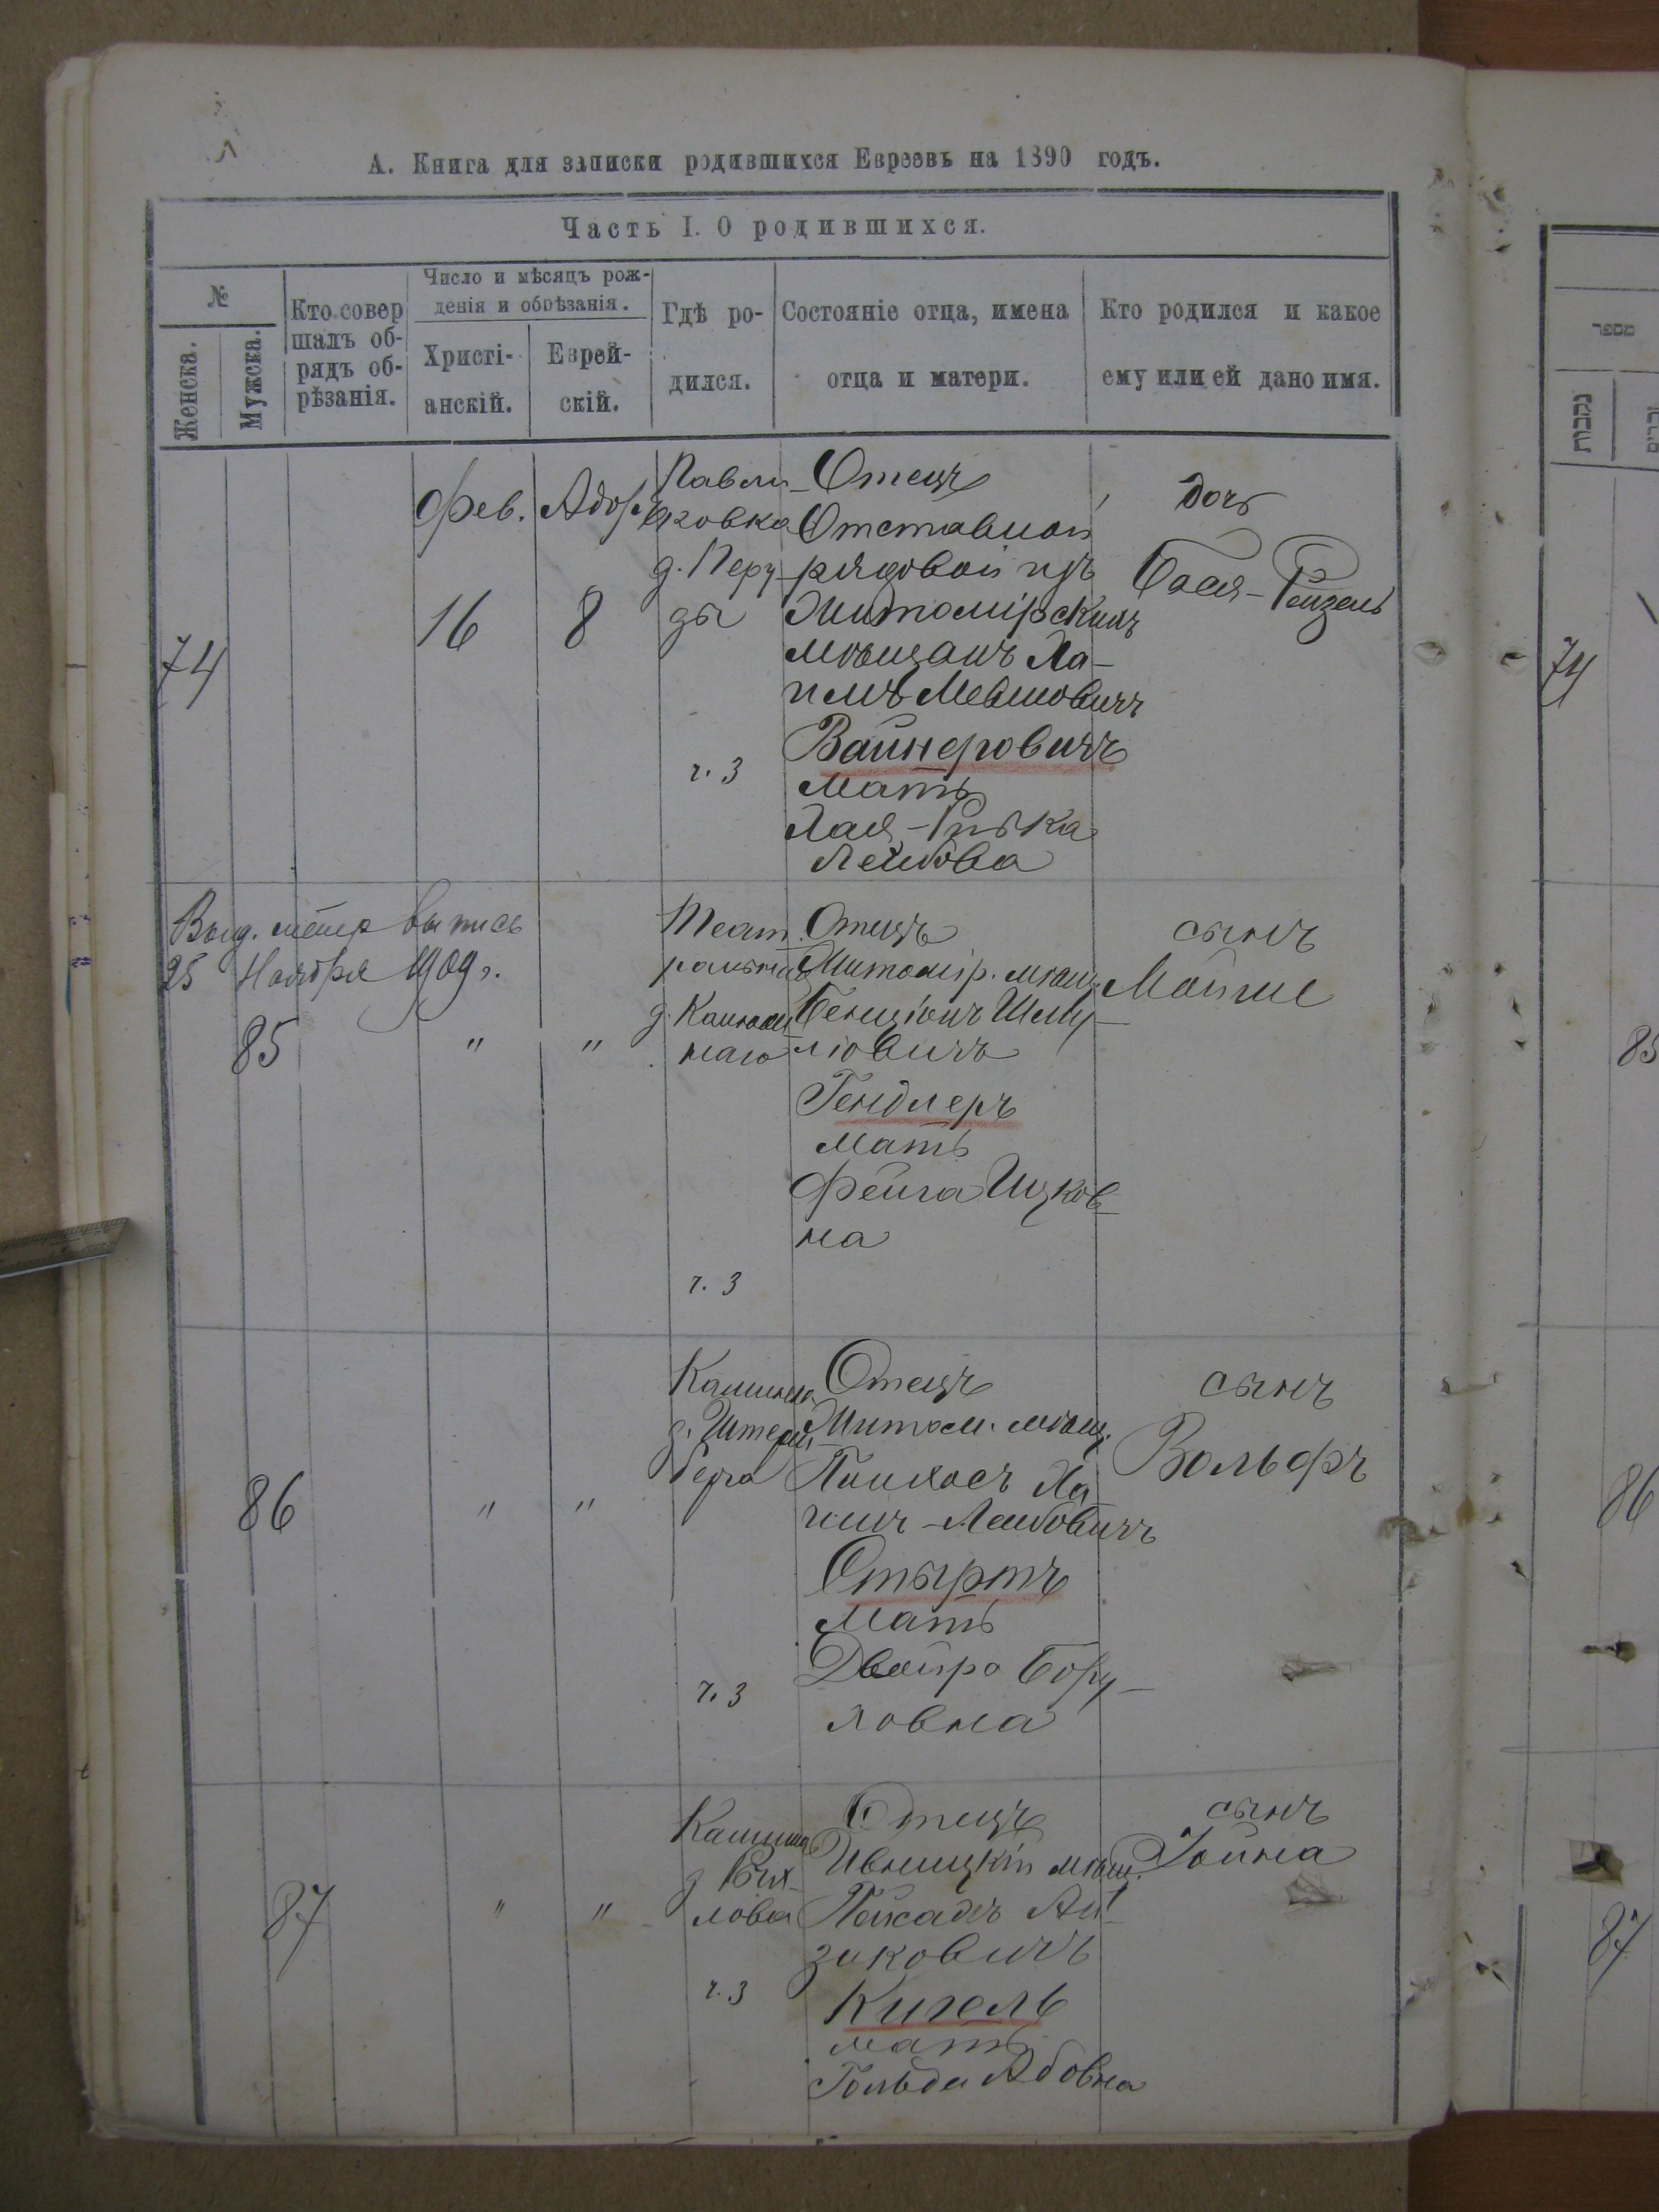 А. Книга для записки родившихся Евреевъ на 1890 годъ.
Часть I. О родившихся.
№
Женска.
Мужска.
Кто совер
шалъ об-
рядъ об-
рѣзанія.
Число и мѣсяцъ рож-
денія и обрѣзанія.
Христі-
анскій.
Еврей-
скій.
Гдѣ ро-
дился.
Состояніе отца, имена
отца и матери.
Кто родился и какое
ему или ей дано имя.
74
Фев.
16
Адоръ
8
Павли
ковка
д. Перу
ды
ч. 3
Отецъ
Отставной
рядовой изъ
Житомірскихъ
мѣщанъ Ха-
имъ Мевшовичъ
Вайнеровичъ
мать
Хая-Ривка
Лейбова
дочь
Бася-Рейзель
Выд. метр выпись
25 Ноября 1909 г.
85
"
"
Теат
ральная
д.
наго
ч. 3
Отецъ
Житомір. мѣщ.
Бенціонъ Шму-
лювичъ
Гендлеръ
мать
Фейга Ицков-
на
сынъ
Мойше
86
"
"
д. Штерн
берга
ч. 3
Отецъ
Житом. мѣщ.
Пинхасъ Ха
имъ-Лейбовичъ
мать
Двойра Бору-
ховна
сынъ
Вольфъ
87
"
"
д
лова
ч. 3
Отецъ
Ивницкій мѣщ.
Пейсахъ Ай-
зиковичъ
Кигель
мать
Гольда Абовна
сынъ
Іойна
מספר
נקבות
זכרים
74
85
86
87